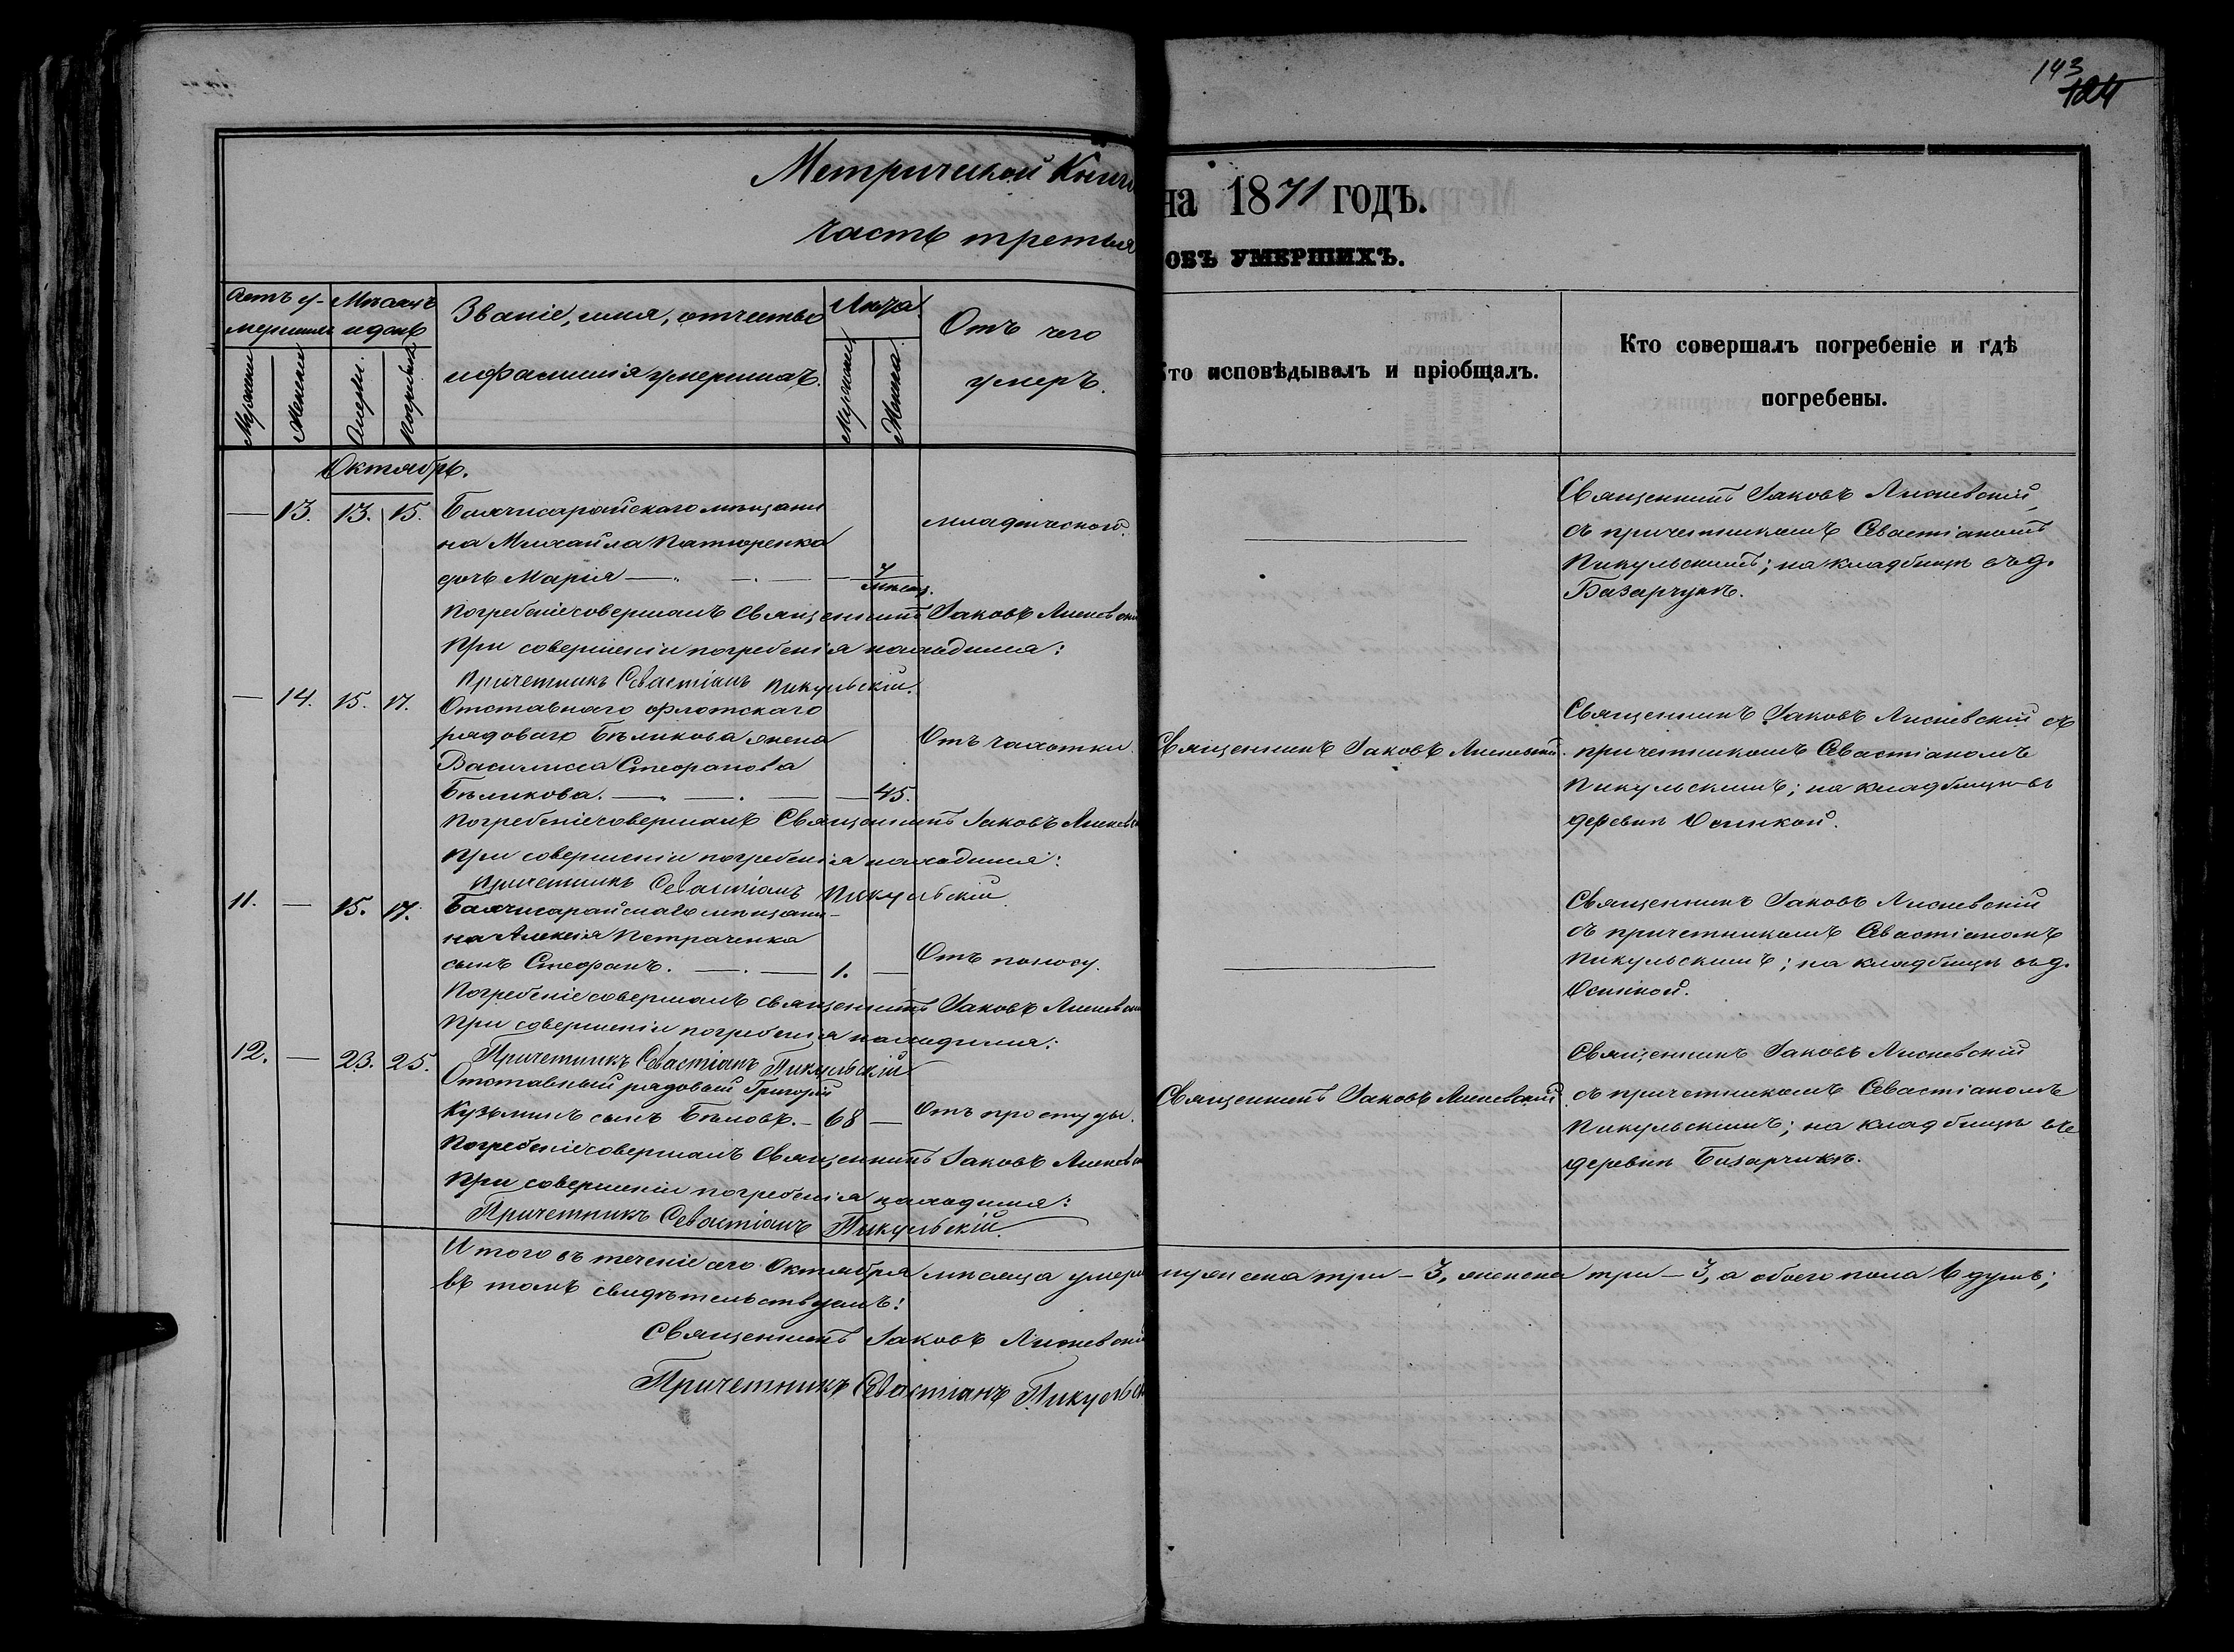 143
124
Метрической Книги
на 1871 годъ.
часть третья
объ умершихъ.
Счетъ у-
мершихъ
Мужеска
Женска
Мѣсяцъ
и день
Смерти.
Погребенія
Званіе, имя, отчество
и фамилія умершихъ.
Лѣта.
Мужеска
Женска
Отъ чего
умеръ.
Кто исповѣдывалъ и пріобщалъ.
Кто совершалъ погребеніе и гдѣ
погребены.
Октябрь.
— 13. 13. 15. Бахчисарайскаго мѣщани
на Михаила
дочь Марія — 7 мѣсяц.
младенческой.
Священникъ Іаковъ
съ причетникомъ Севастіаномъ
Пикульскимъ; на кладбищѣ въ д.
Базарчукѣ.
Погребеніе совершалъ Священникъ Іаковъ
При совершеніи погребенія находился:
Причетникъ Севастіанъ Пикульскій.
— 14. 15. 17. Отставнаго флотскаго
рядоваго Бѣликова жена
Василисса Стефанова
Бѣликова. — 45.
Отъ чахотки.
Священникъ Іаковъ
Священникъ Іаковъ съ
причетникомъ Севастіаномъ
Пикульскимъ; на кладбищѣ въ
деревнѣ
Погребеніе совершалъ Священникъ Іаковъ
При совершеніи погребенія находился:
Причетникъ Севастіанъ Пикульскій.
11. — 15. 17. Бахчисарайскаго мѣщани-
на Алексія Петраченка
сынъ Стефанъ. — 1. —
Отъ поносу.
Священникъ Іаковъ
съ причетникомъ Севастіаномъ
Пикульскимъ; на кладбищѣ въ д.
Погребеніе совершалъ священникъ Іаковъ
При совершеніи погребенія находился:
Причетникъ Севастіанъ Пикульскій
12. — 23. 25. Отставный рядовый Григорій
Кузьминъ сынъ Бѣловъ. — 68 —
Отъ простуды.
Священникъ Іаковъ
Священникъ Іаковъ
съ причетникомъ Севастіаномъ
Пикульскимъ; на кладбищѣ въ
деревнѣ Базарчикѣ.
Погребеніе совершалъ Священникъ Іаковъ
При совершеніи погребенія находился:
Причетникъ Севастіанъ Пикульскій.
Итого въ теченіе сего Октября мѣсяца умерло мужеска три — 3, женска три — 3, а обоего пола 6 душъ;
въ томъ свидѣтельствуемъ:
Священникъ Іаковъ
Причетникъ Севастіанъ Пикульск